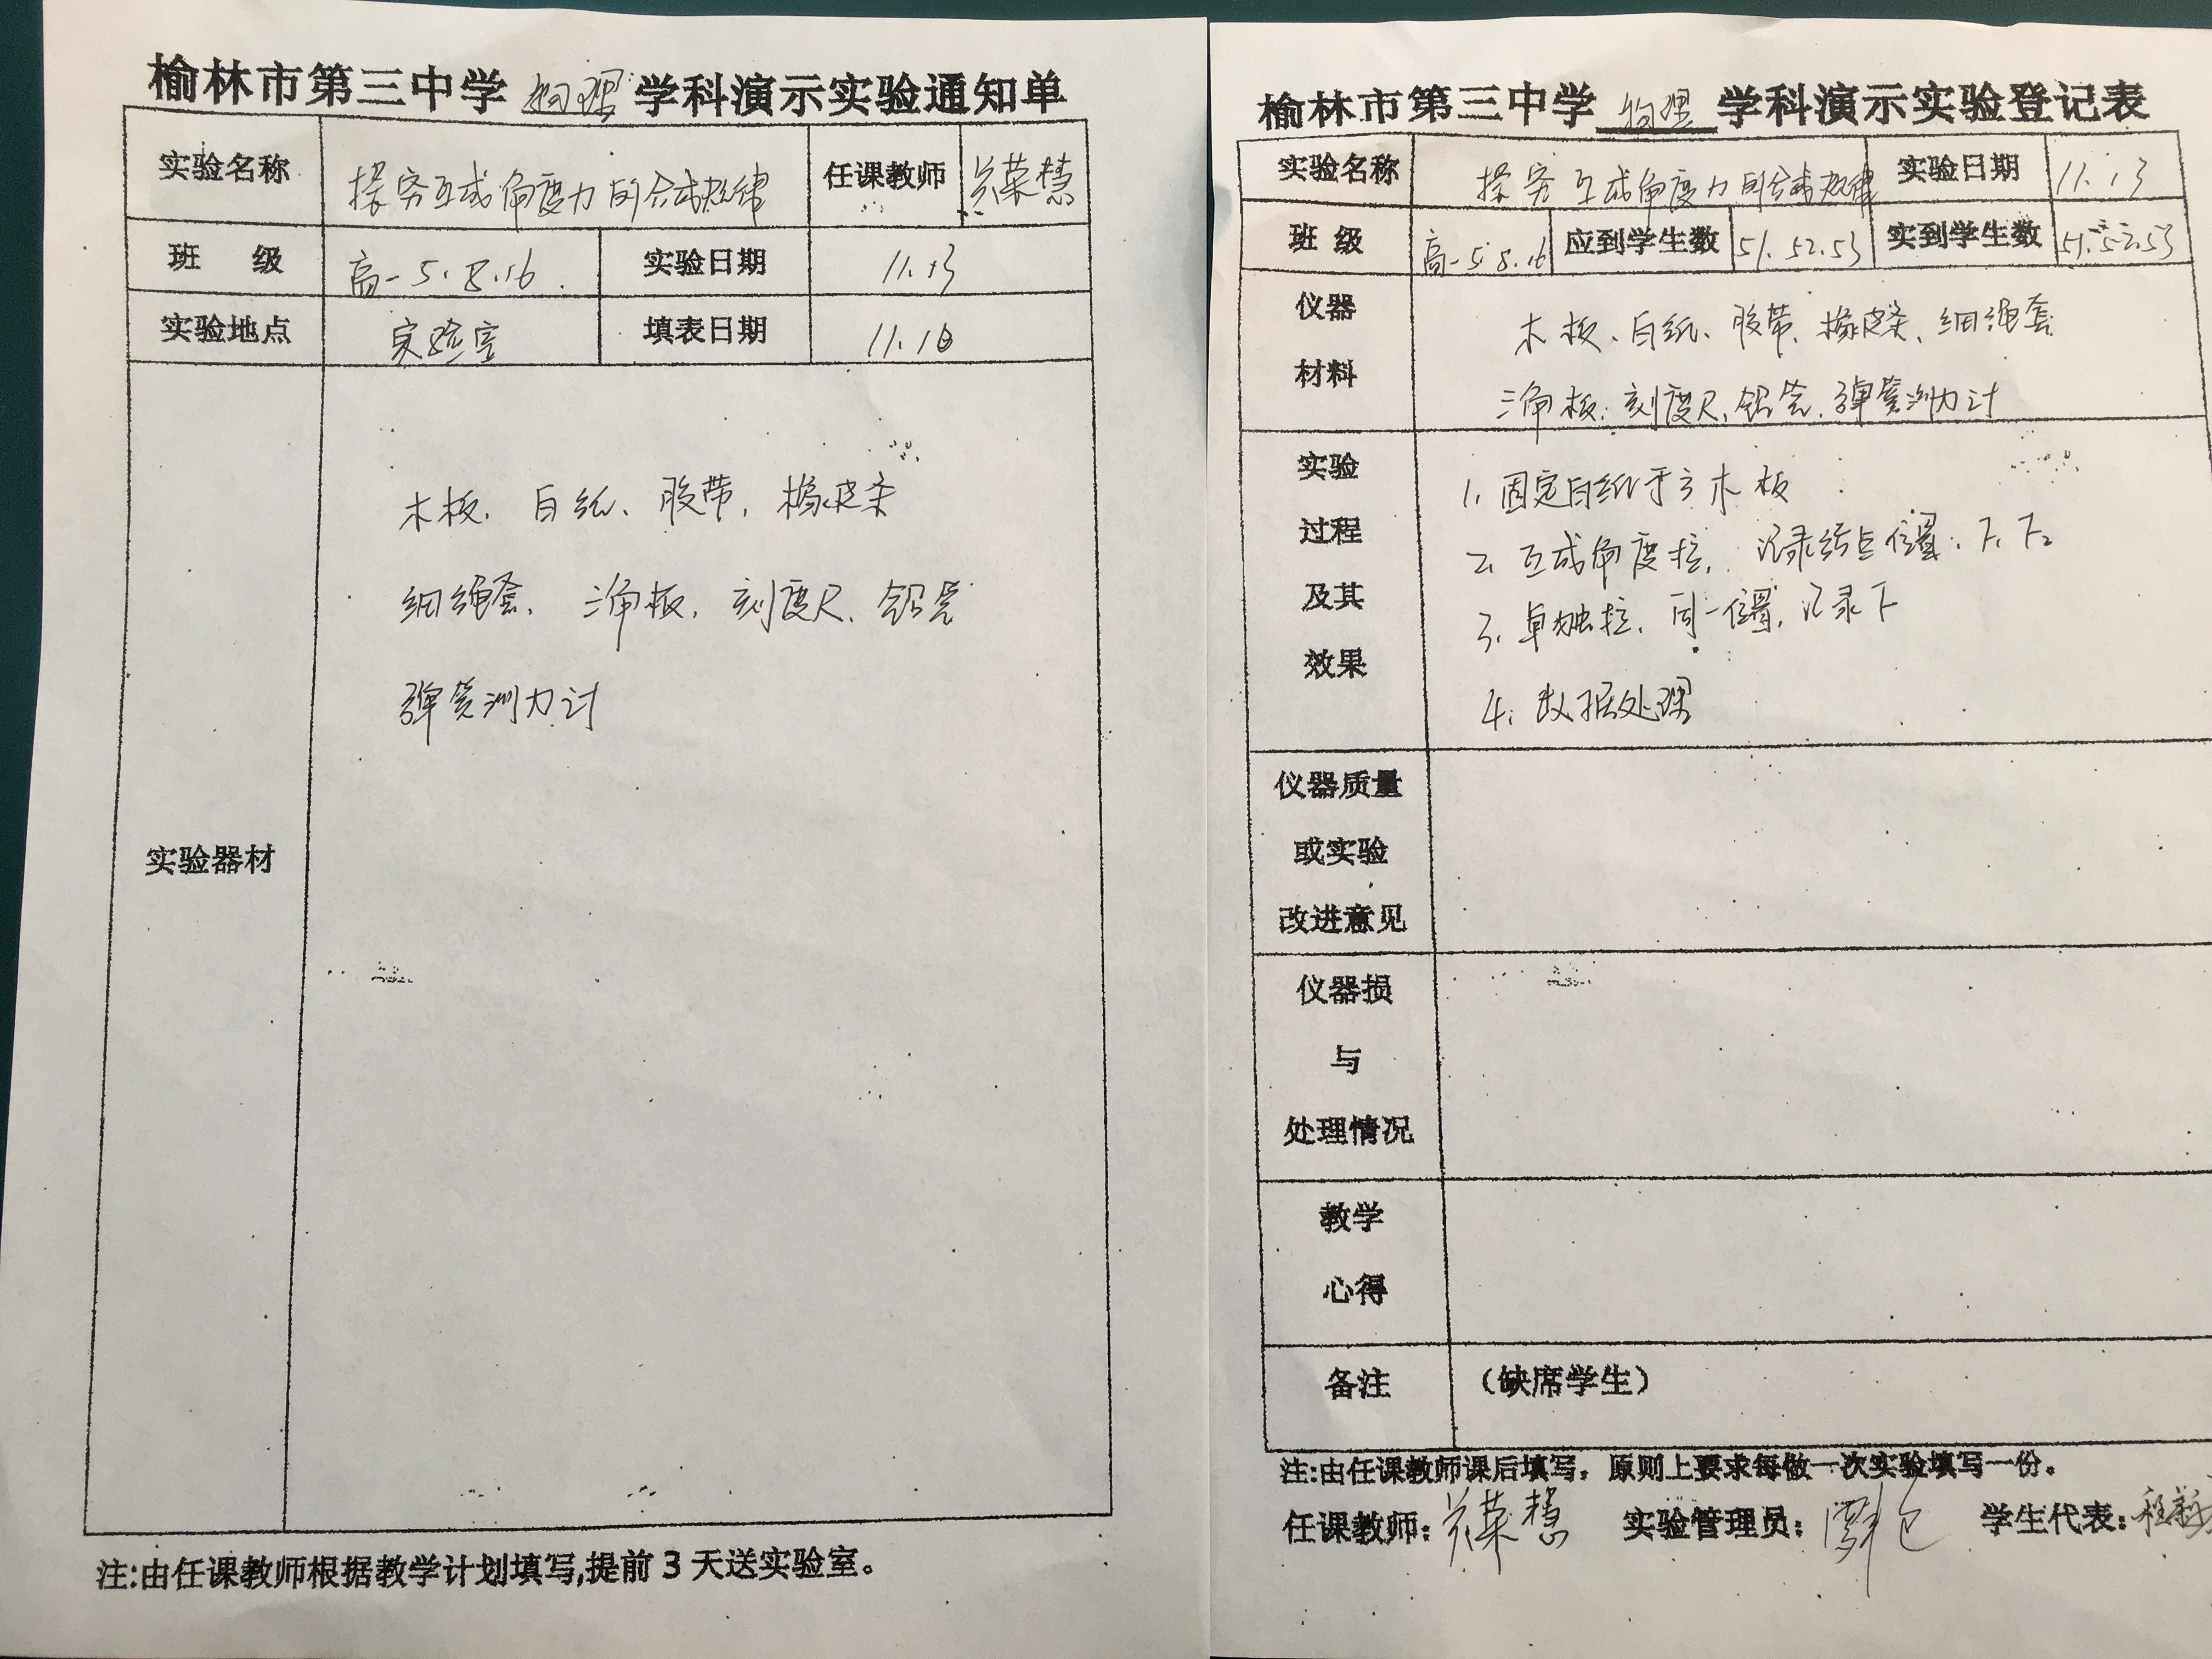 榆林市第三中学 物理 学科演示实验通知单
实验名称 探究互成角度力的合成规律 任课教师 荣慧
班 级 高一5.8.16. 实验日期 11.13
实验地点 实验室 填表日期 11.10
实验器材
木板、白纸、胶带、橡皮条
细绳套、三角板、刻度尺、铅笔
弹簧测力计
注:由任课教师根据教学计划填写,提前3天送实验室。
榆林市第三中学 物理 学科演示实验登记表
实验名称 探究互成角度力的合成规律 实验日期 11.13
班 级 高一5.8.16 应到学生数 51.52.53 实到学生数 51.52.53
仪器材料
木板、白纸、胶带、橡皮条、细绳套
三角板、刻度尺、铅笔、弹簧测力计
实验过程及其效果
1、固定白纸于木板
2、互成角度拉,记录结点位置、F₁ F₂
3、单独拉、同一位置,记录F
4、数据处理
仪器质量
或实验
改进意见
仪器损
与
处理情况
教学
心得
备注 (缺席学生)
注:由任课教师课后填写,原则上要求每做一次实验填写一份。
任课教师: 荣慧 实验管理员: 学生代表: